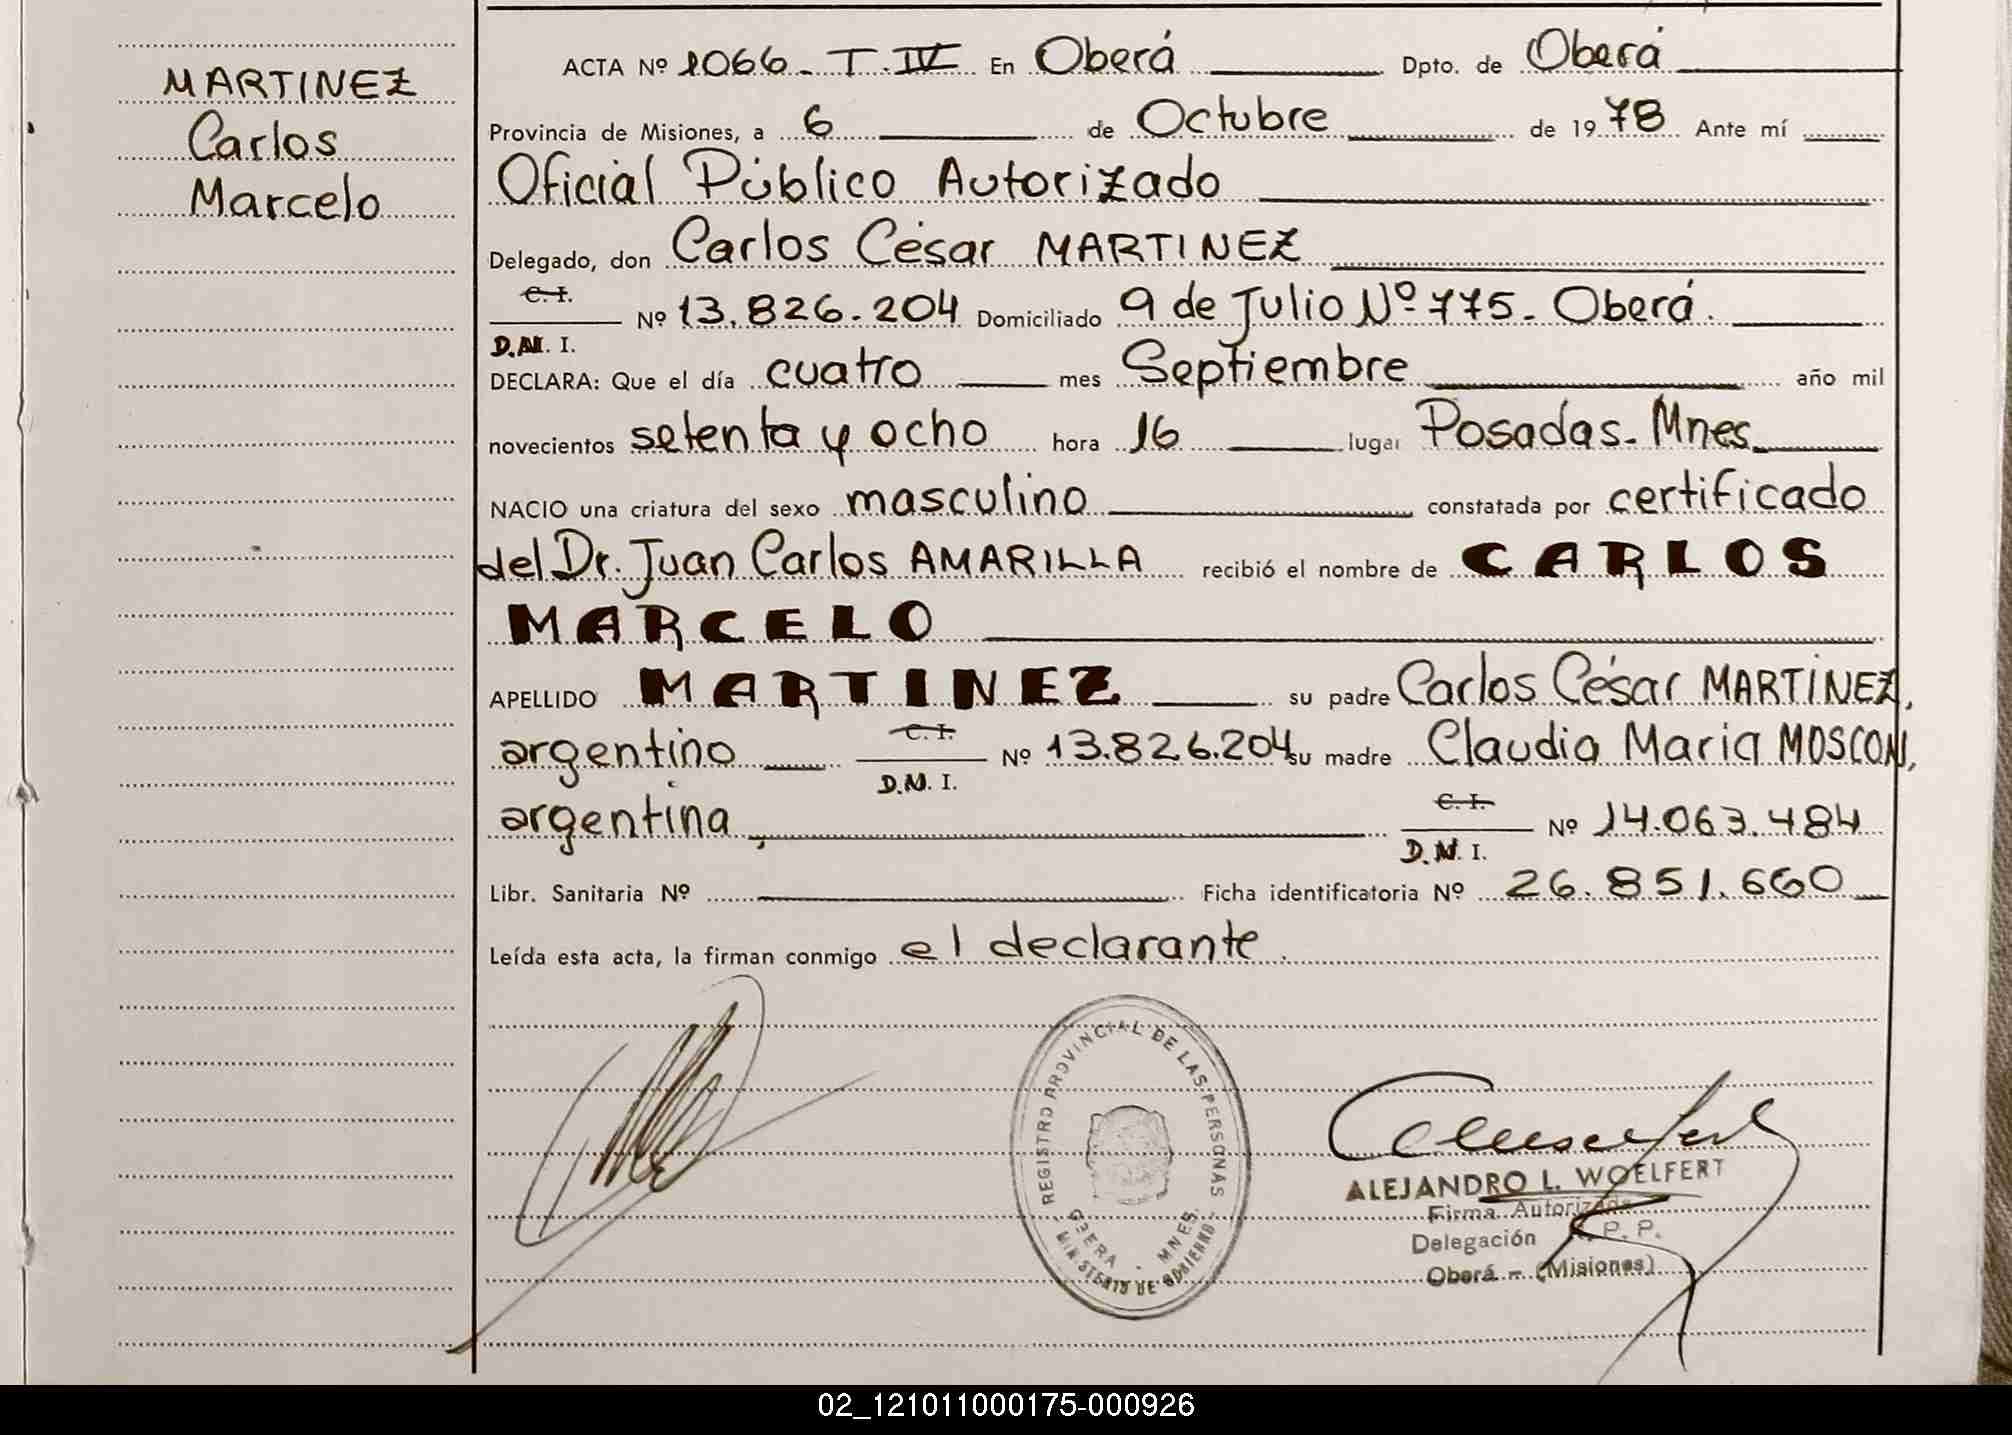 MARTINEZ
Carlos
Marcelo
ACTA Nº 1066. T.IV En Oberá Dpto. de Oberá
Provincia de Misiones, a 6 de Octubre de 19 78 Ante mí
Oficial Público Autorizado
Delegado, don Carlos César MARTINEZ
C.I.
D.N.I. Nº 13.826.204 Domiciliado 9 de Julio Nº 775. Oberá.
DECLARA: Que el día cuatro mes Septiembre año mil
novecientos setenta y ocho hora 16 lugar Posadas. Mnes
NACIO una criatura del sexo masculino constatada por certificado
del Dr. Juan Carlos AMARILLA recibió el nombre de CARLOS
MARCELO
APELLIDO MARTINEZ su padre Carlos César MARTINEZ,
argentino C.I. D.N.I. Nº 13.826.204 su madre Claudia Maria MOSCONI,
argentina, C.I. D.N.I. Nº 14.063.484
Libr. Sanitaria Nº Ficha identificatoria Nº 26.851.660
Leída esta acta, la firman conmigo el declarante.
REGISTRO PROVINCIAL DE LAS PERSONAS
OBERA - MNES.
MINISTERIO DE GOBIERNO
ALEJANDRO L. WOELFERT
Firma Autorizada
Delegación R. P. P.
Oberá - (Misiones)
02_121011000175-000926